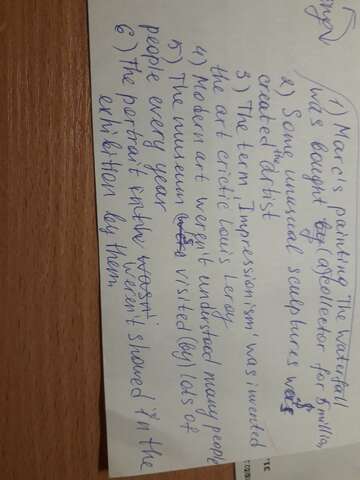 1) Marc's painting The Waterfall
was bought by (a) collector for 5 million
2) Some unusual sculptures were
created the artist
3) The term 'Impressionism' was invented
the art crictic Louis Leroy
4) Modern art weren't understand many people
5) The museum is visited (by) lots of
people every year
6) The portrait weren't showed in the
exhibition by them